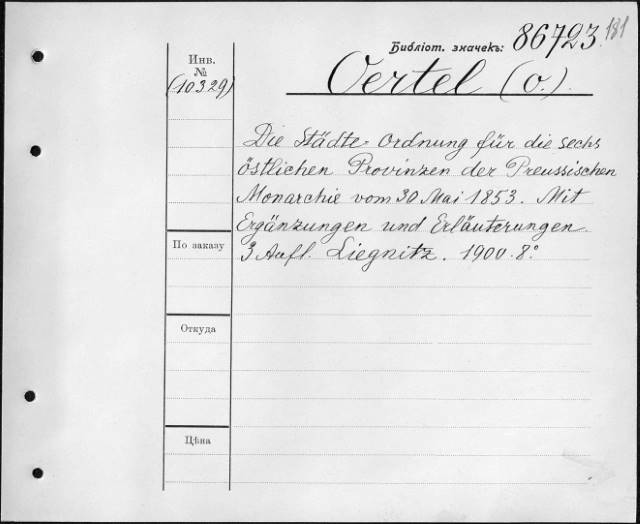 181
Библіот. значекъ: 86723
Инв.
№
(10329)
Oertel (O.).
Die Städte-Ordnung für die sechs
östlichen Provinzen der Preussischen
Monarchie vom 30 Mai 1853. Mit
Ergänzungen und Erläuterungen.
3 Aufl. Liegnitz. 1900. 8º
По заказу
Откуда
Цѣна